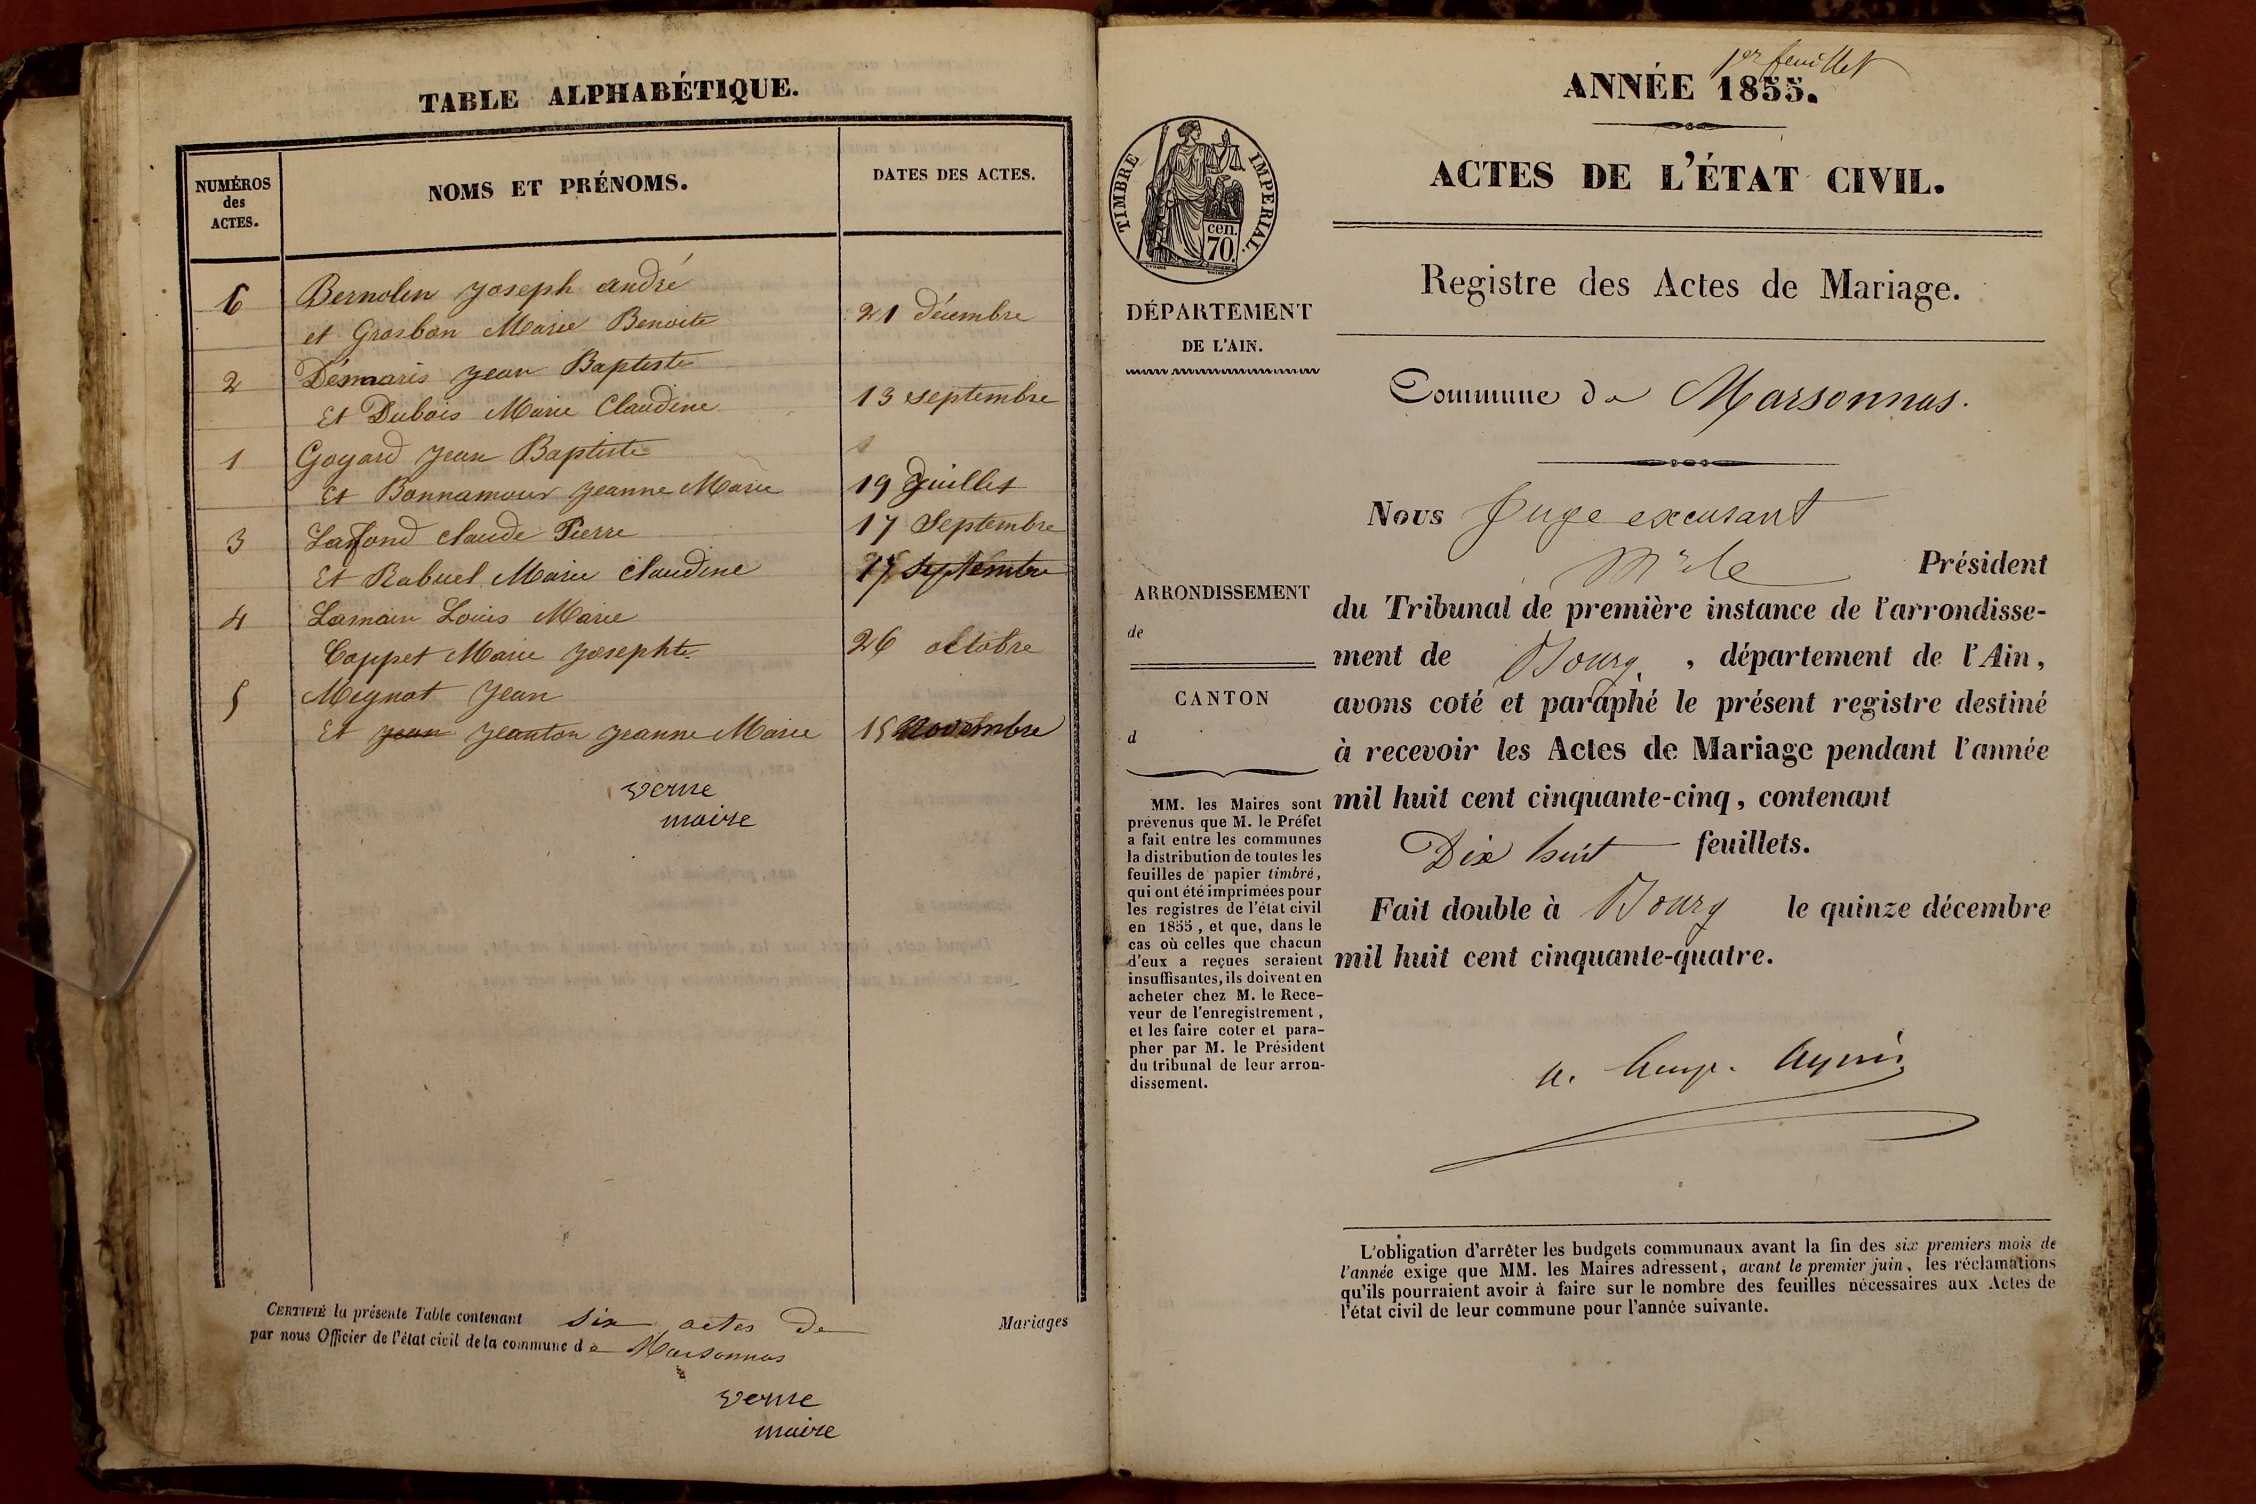 TABLE ALPHABÉTIQUE.
NUMÉROS
des
ACTES.
NOMS ET PRÉNOMS.
DATES DES ACTES.
6 Bernolin Joseph andré
et Grosbon Marie Benoite 21 décembre
2 Démaris Jean Baptiste
Et Dubois Marie Claudine 13 septembre
1 Goyard Jean Baptiste
Et Bonnamour Jeanne Marie 19 Juillet
3 Lafond claude Pierre 17 Septembre
Et Rabuel Marie claudine 17 septembre
4 Lamain Louis Marie
Coppet Marie Josephte 26 octobre
5 Mignot Jean
Et Jean Jeanton Jeanne Marie 15 Novembre
verne
maire
CERTIFIÉ la présente Table contenant six actes de Mariages
par nous Officier de l'état civil de la commune de Marsonnas
verne
maire
1er feuillet
ANNÉE 1855.
ACTES DE L'ÉTAT CIVIL.
TIMBRE IMPERIAL.
cen.
70.
DÉPARTEMENT
DE L'AIN.
Registre des Actes de Mariage.
Commune de Marsonnas.
Nous Juge excusant
Mr le Président
du Tribunal de première instance de l'arrondisse-
ment de Bourg, département de l'Ain,
avons coté et paraphé le présent registre destiné
à recevoir les Actes de Mariage pendant l'année
mil huit cent cinquante-cinq, contenant
Dix huit feuillets.
Fait double à Bourg le quinze décembre
mil huit cent cinquante-quatre.
ARRONDISSEMENT
de
CANTON
d
MM. les Maires sont
prévenus que M. le Préfet
a fait entre les communes
la distribution de toutes les
feuilles de papier timbré,
qui ont été imprimées pour
les registres de l'état civil
en 1855, et que, dans le
cas où celles que chacun
d'eux a reçues seraient
insuffisantes, ils doivent en
acheter chez M. le Rece-
veur de l'enregistrement,
et les faire coter et para-
pher par M. le Président
du tribunal de leur arron-
dissement.
L'obligation d'arrêter les budgets communaux avant la fin des six premiers mois de
l'année exige que MM. les Maires adressent, avant le premier juin, les réclamations
qu'ils pourraient avoir à faire sur le nombre des feuilles nécessaires aux Actes de
l'état civil de leur commune pour l'année suivante.